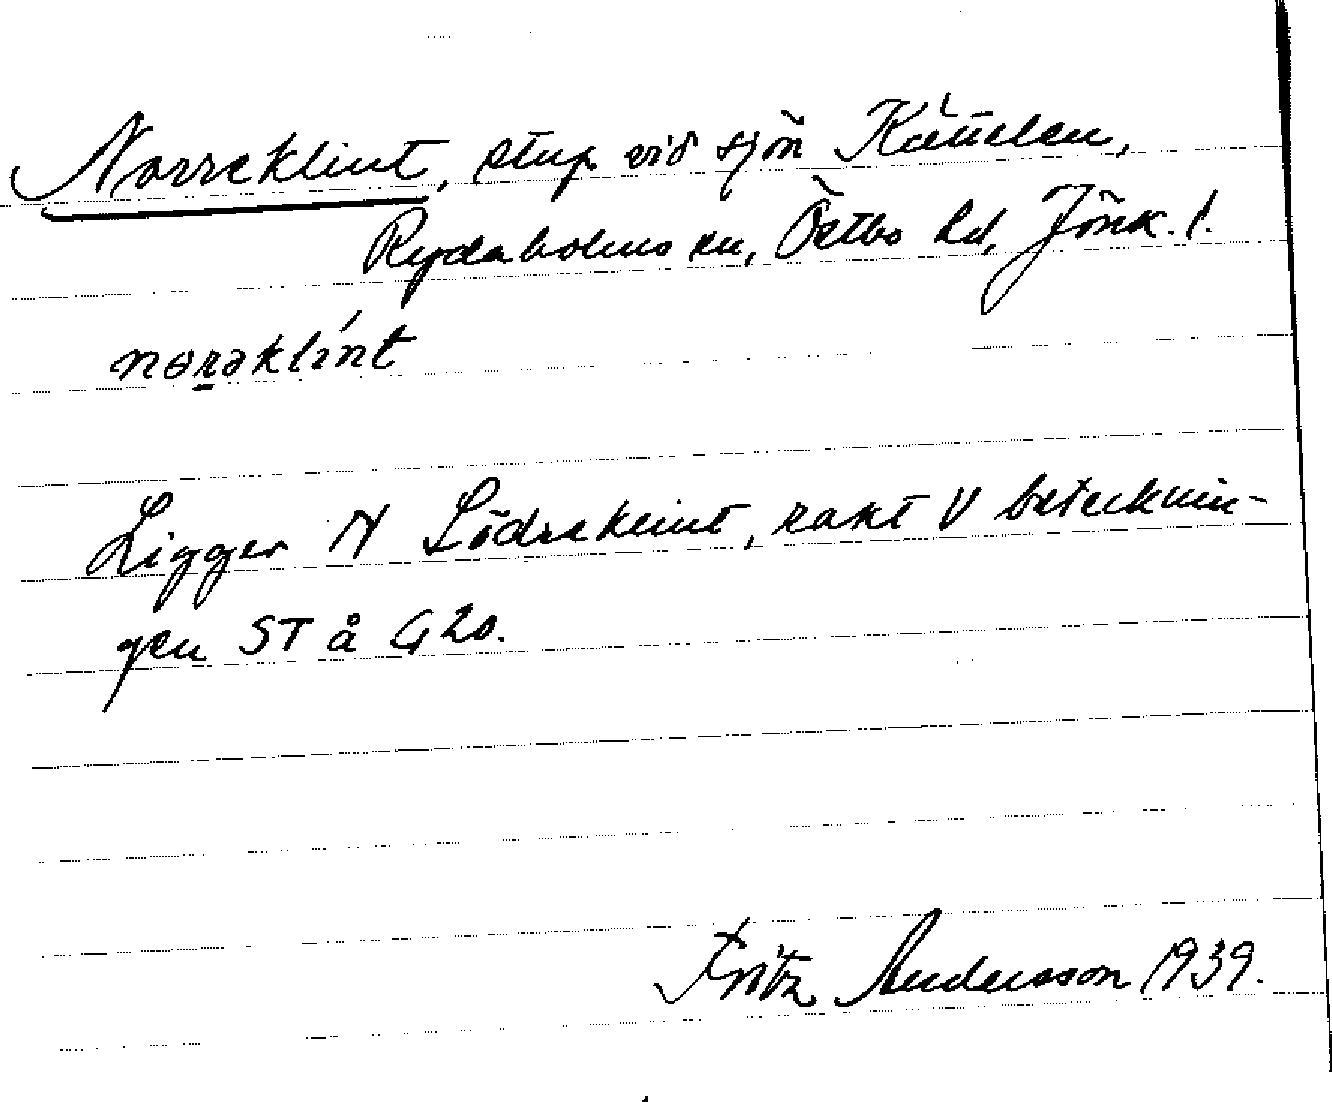 Norreklint, stup vid sjön
Rydaholms sn, Östbo hd, Jönk. l.
nɵrəklínt
Ligger N Södreklint, rakt V betecknin-
gen ST å G20.
Fritz Andersson 1939.